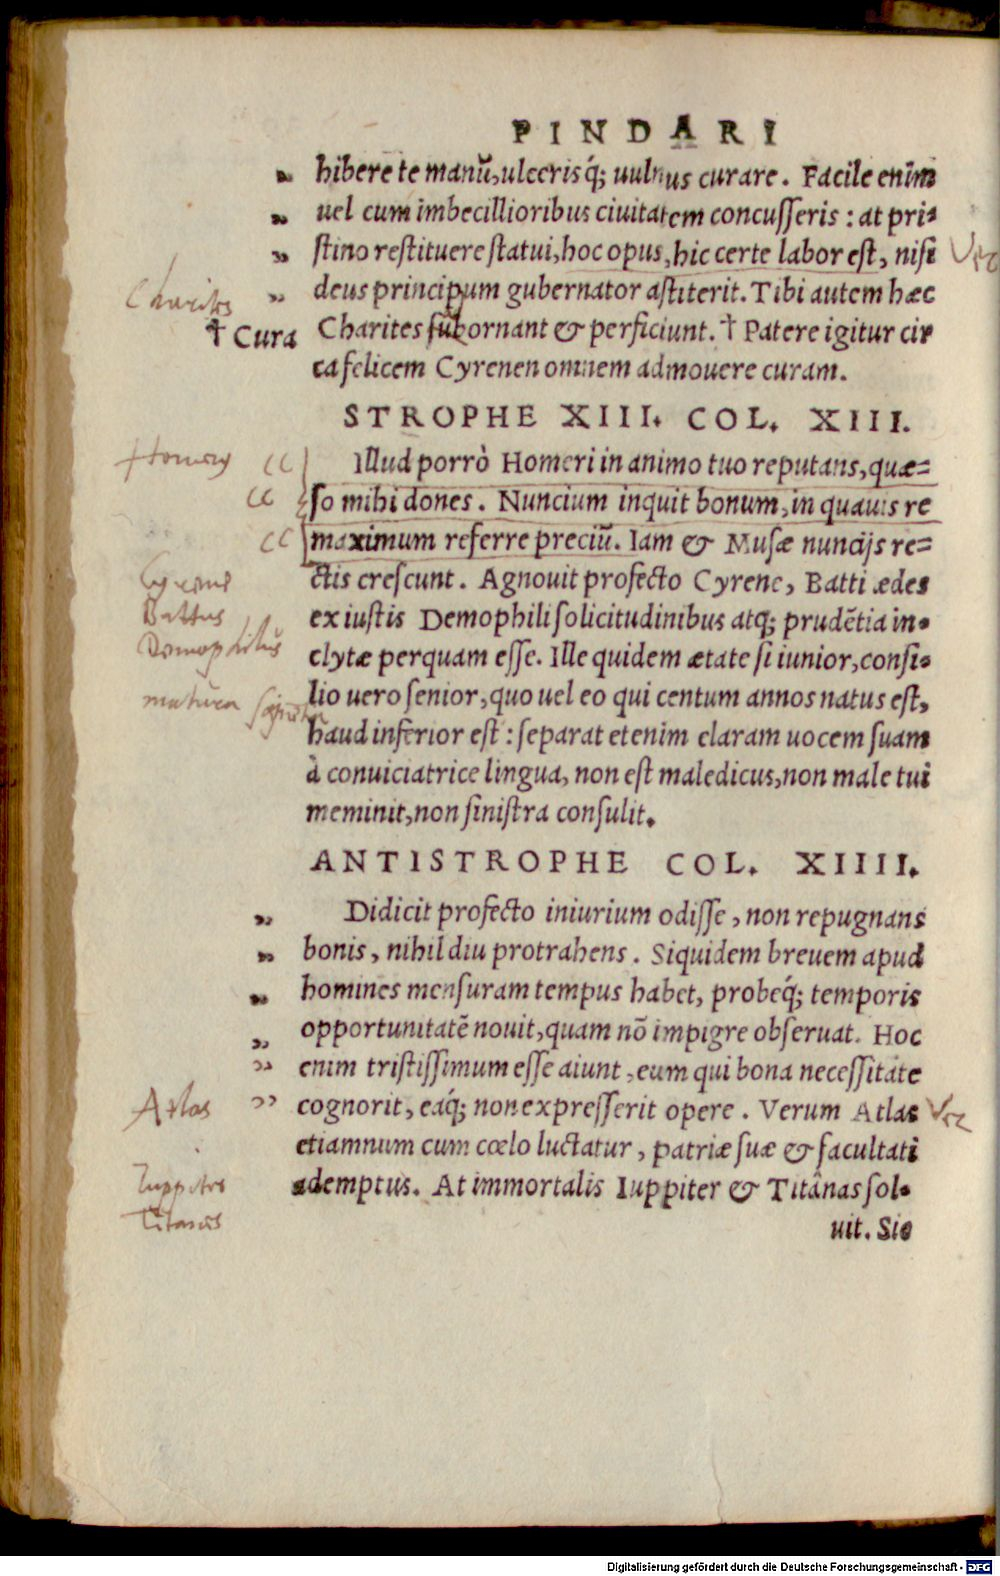 PINDARI
„ hibere te manũ, ulceris q́; uulnus curare. Facile enĩm
„ uel cum imbecillioribus ciuitatem concusseris : at pri-
„ stino restituere statui, hoc opus, hic certe labor est, nisi
„ deus principum gubernator astiterit. Tibi autem hæc
Charites
† Cura Charites subornant & perficiunt. † Patere igitur cir
ca felicem Cyrenen omnem admouere curam.
STROPHE XIII. COL. XIII.
Homerus “ Illud porrò Homeri in animo tuo reputans, quæ=
“ so mihi dones. Nuncium inquit bonum, in quauis re
“ maximum referre preciũ. Iam & Musæ nuncijs re=
Cyrene ctis crescunt. Agnouit profecto Cyrene, Batti ædes
Battus ex iustis Demophili solicitudinibus atq; prudẽtia in-
Demophilus clytæ perquam esse. Ille quidem ætate si iunior, consi-
matura lio uero senior, quo uel eo qui centum annos natus est,
haud inferior est : separat etenim claram uocem suam
à conuiciatrice lingua, non est maledicus, non male tui
meminit, non sinistra consulit.
ANTISTROPHE COL. XIIII.
„ Didicit profecto iniurium odisse, non repugnans
„ bonis, nihil diu protrahens. Siquidem breuem apud
„ homines mensuram tempus habet, probeq́; temporis
„ opportunitatẽ nouit, quam nõ impigre obseruat. Hoc
„ enim tristissimum esse aiunt, eum qui bona necessitate
Atlas „ cognorit, eaq́; non expresserit opere. Verum Atlas
etiamnum cum cœlo luctatur, patriæ suæ & facultati
Iuppiter ademptus. At immortalis Iuppiter & Titânas sol-
Titanes
uit. Sic
Digitalisierung gefördert durch die Deutsche Forschungsgemeinschaft - DFG